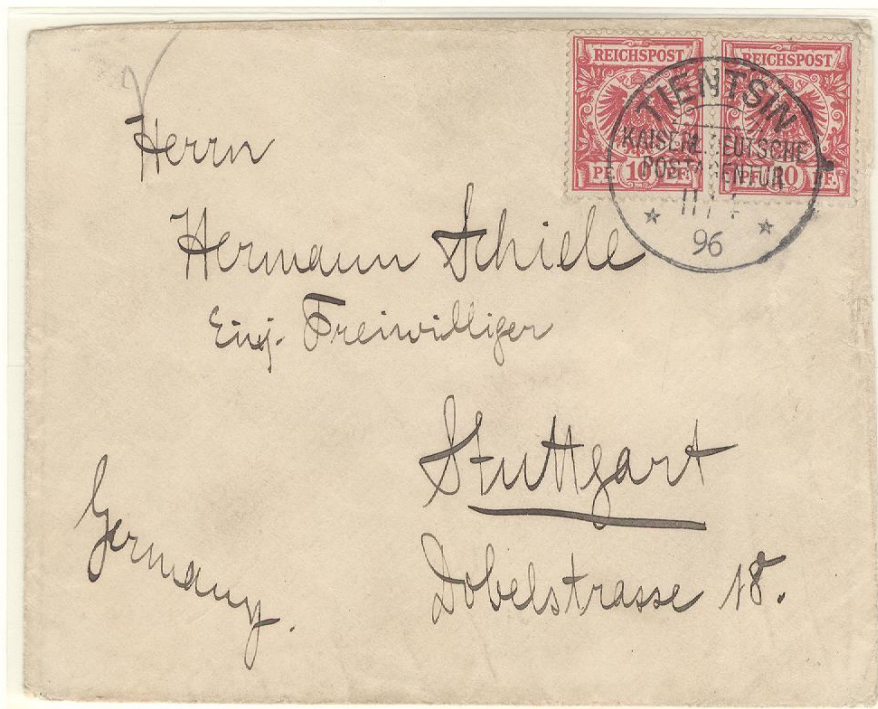 REICHSPOST REICHSPOST
PF. 10 PF. PF. 10 PF.
TIENTSIN
KAISERL. DEUTSCHE
POSTAGENTUR
96
Herrn
Hermann Schiele
Einj. Freiwilliger
Stuttgart
Dobelstrasse 18.
Germany.